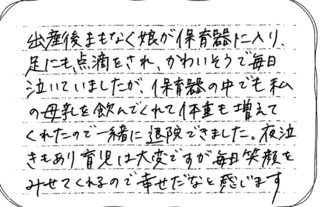 出産後まもなく娘が保育器に入り、
足にも点滴をされ、かわいそうで毎日
泣いていましたが、保育器の中でも私
の母乳を飲んでくれて体重も増えて
くれたので一緒に退院できました。夜泣
きもあり育児は大変ですが毎日笑顔を
みせてくれるので幸せだなと感じます